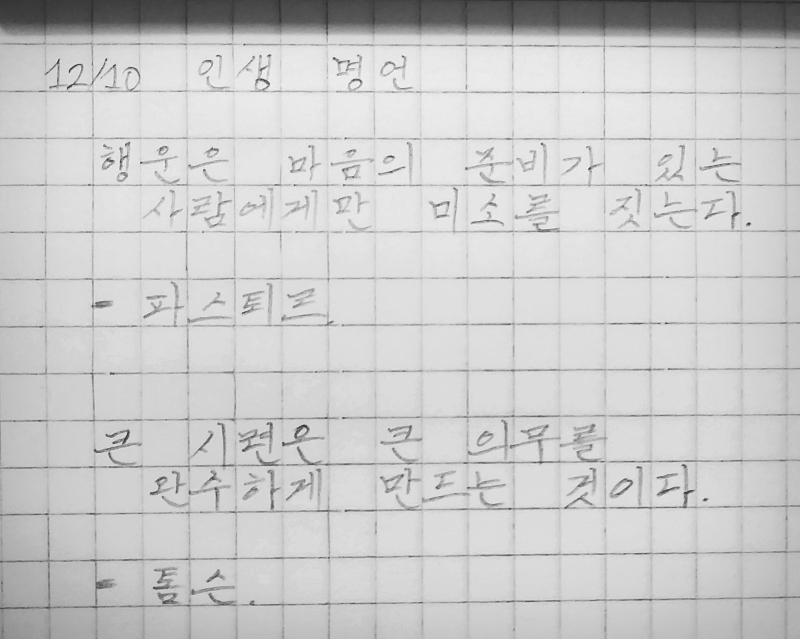 12/10 인생 명언
행운은 마음의 준비가 있는
사람에게만 미소를 짓는다.
- 파스퇴르.
큰 시련은 큰 의무를
완수하게 만드는 것이다.
- 톰슨.